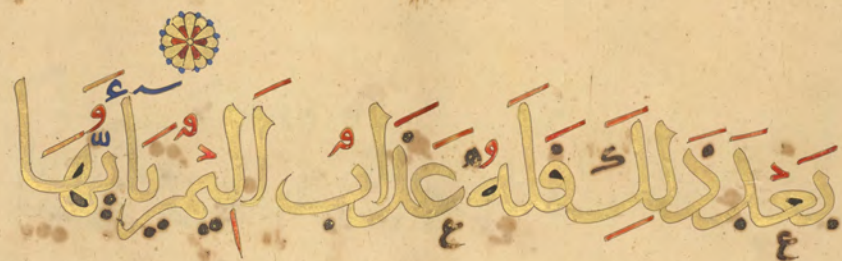 بَعْدَ ذَٰلِكَ فَلَهُ عَذَابٌ أَلِيمٌ يَا أَيُّهَا